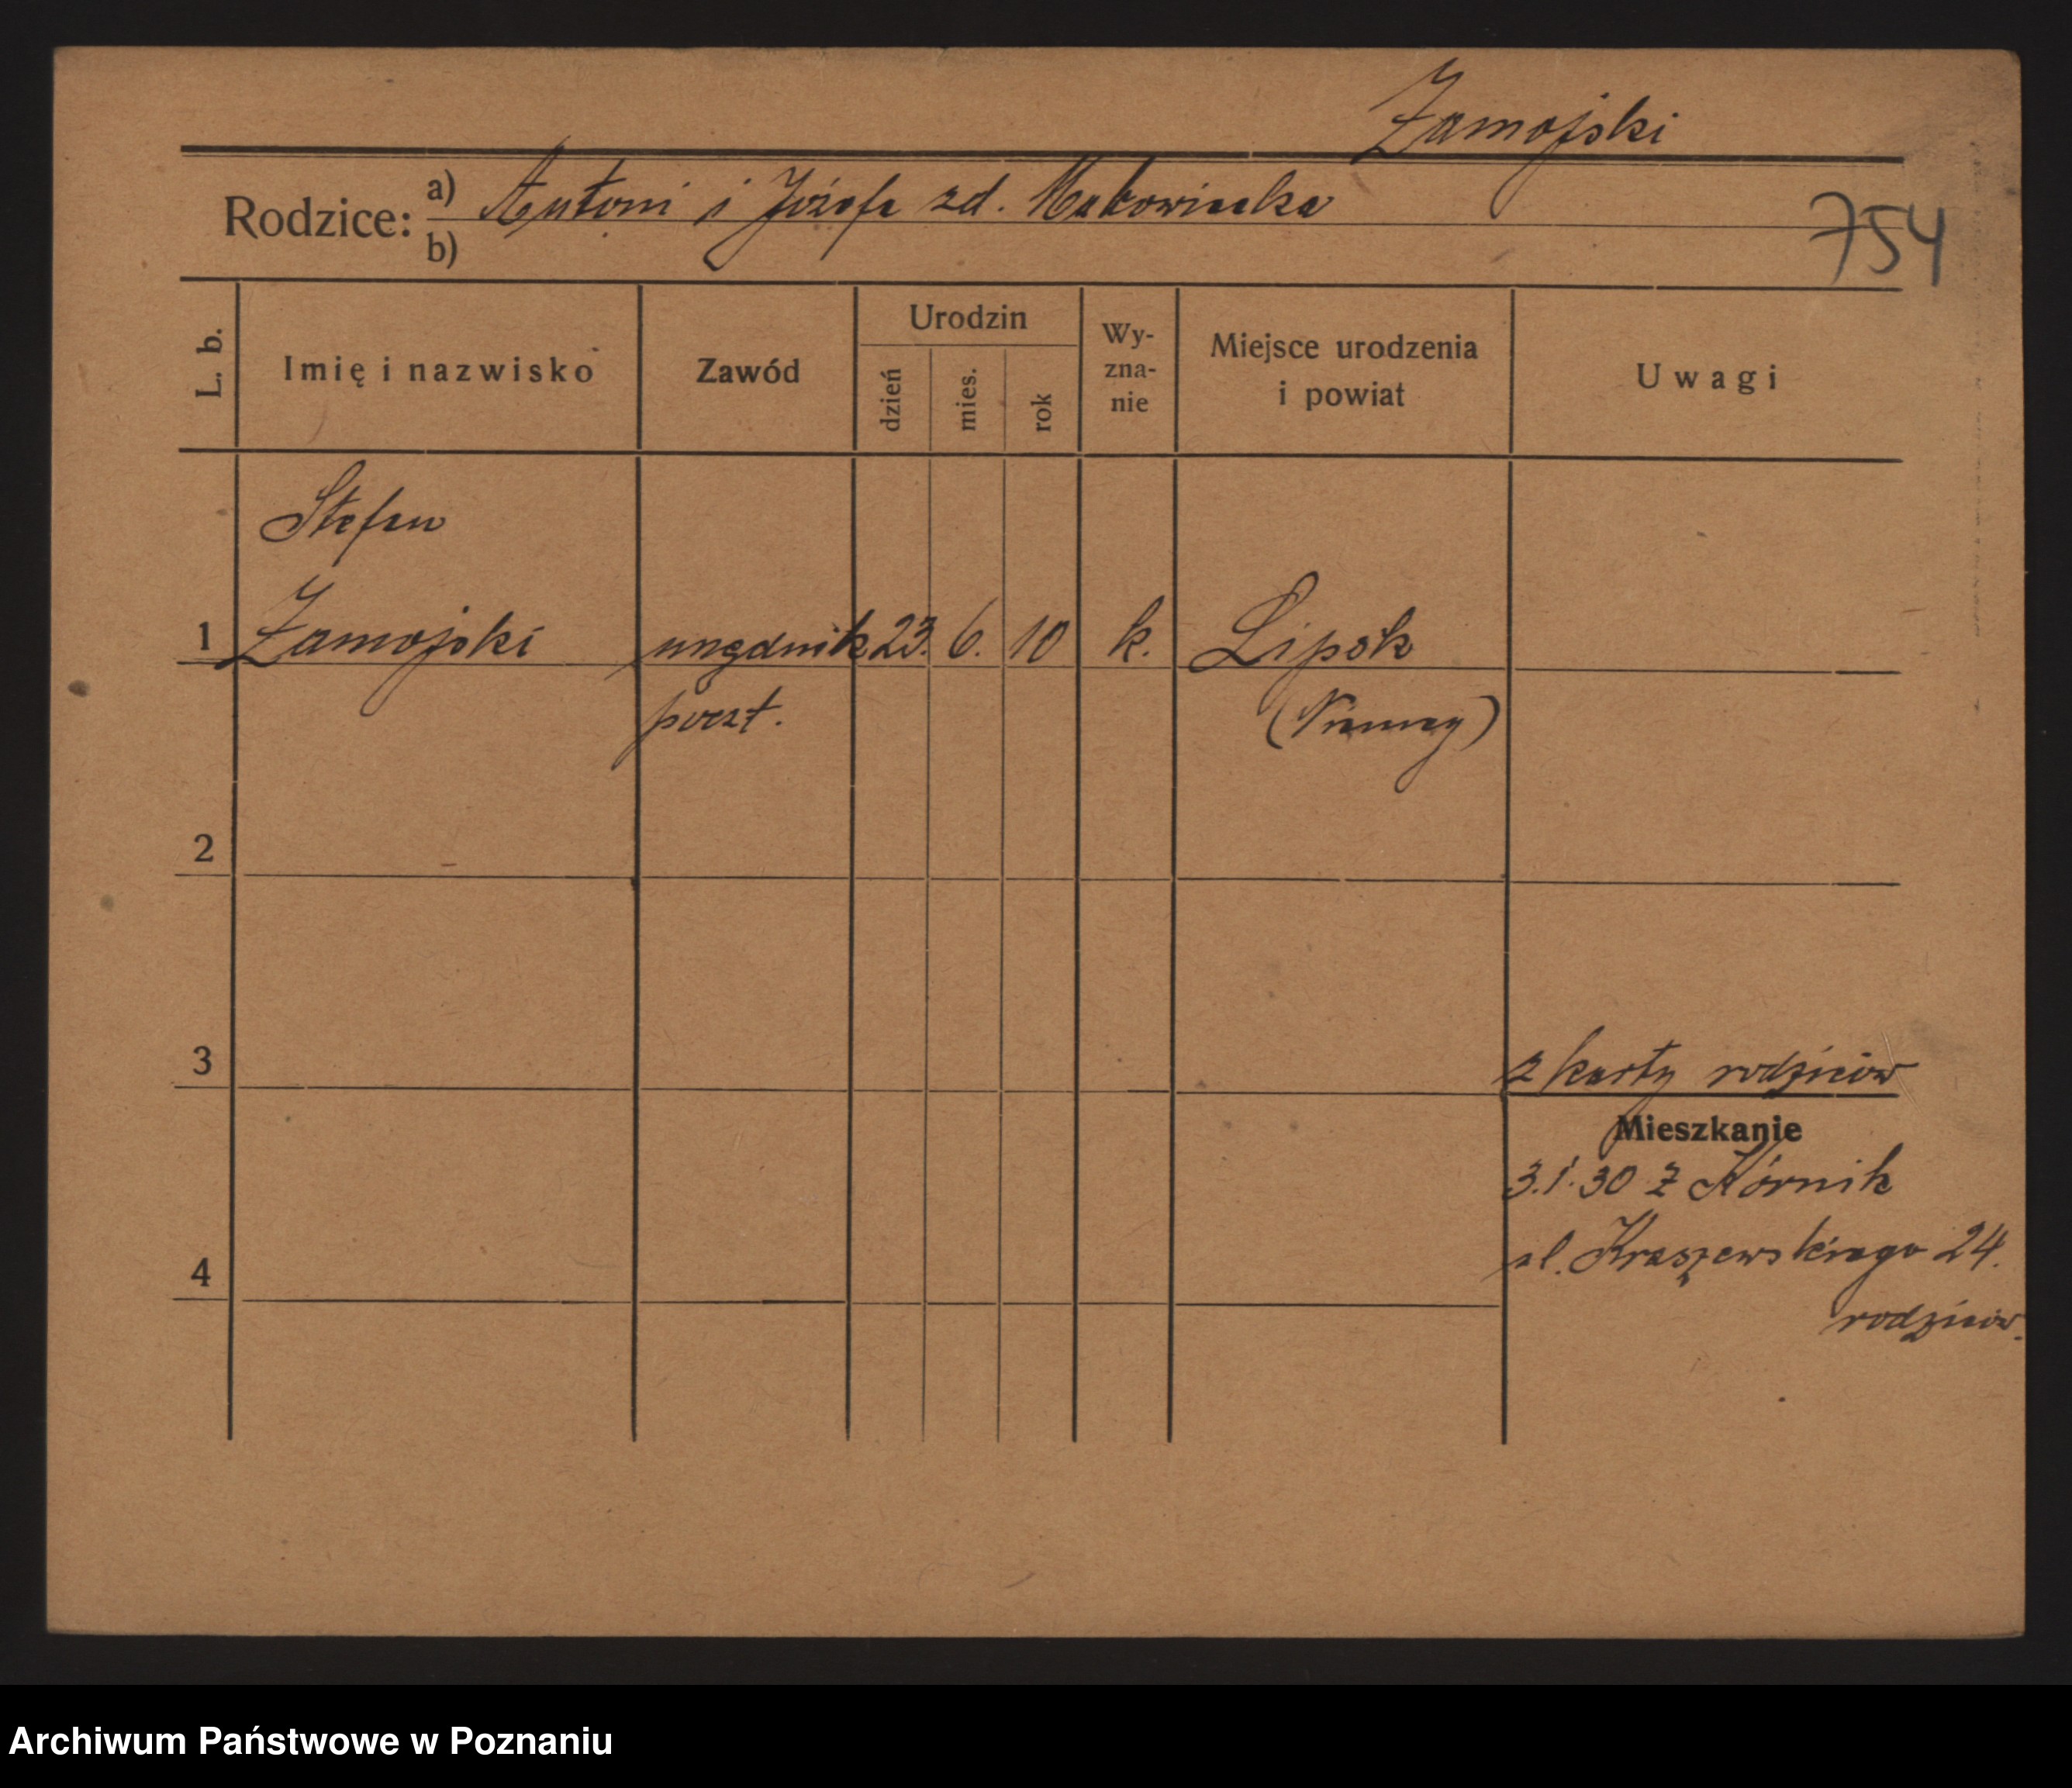 Zamojski
Rodzice: a) Antoni i Józefa zd. Makowiecka
b)
754
L. b.
Imię i nazwisko
Zawód
Urodzin
dzień
mies.
rok
Wy-
zna-
nie
Miejsce urodzenia
i powiat
Uwagi
Stefan
1 Zamojski urzędnik 23. 6. 10 k. Lipsk
poczt. (Niemcy)
2
3
z karty rodziców
Mieszkanie
3.1.30 z Kórnik
ul. Kraszewskiego 24.
4
rodziców.
Archiwum Państwowe w Poznaniu